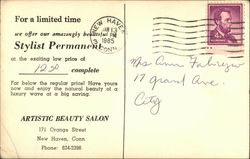 For a limited time
we offer our amazingly beautiful
Stylist Permanent
at the exciting low price of
12.50 complete
Far below the regular price! Have yours
now and enjoy the natural beauty of a
luxury wave at a big saving.
ARTISTIC BEAUTY SALON
171 Orange Street
New Haven, Conn
Phone: 624-2398
NEW HAVEN
JAN 13
PM
1965
CONN.
Mrs Ann
17 Grand Ave.
City